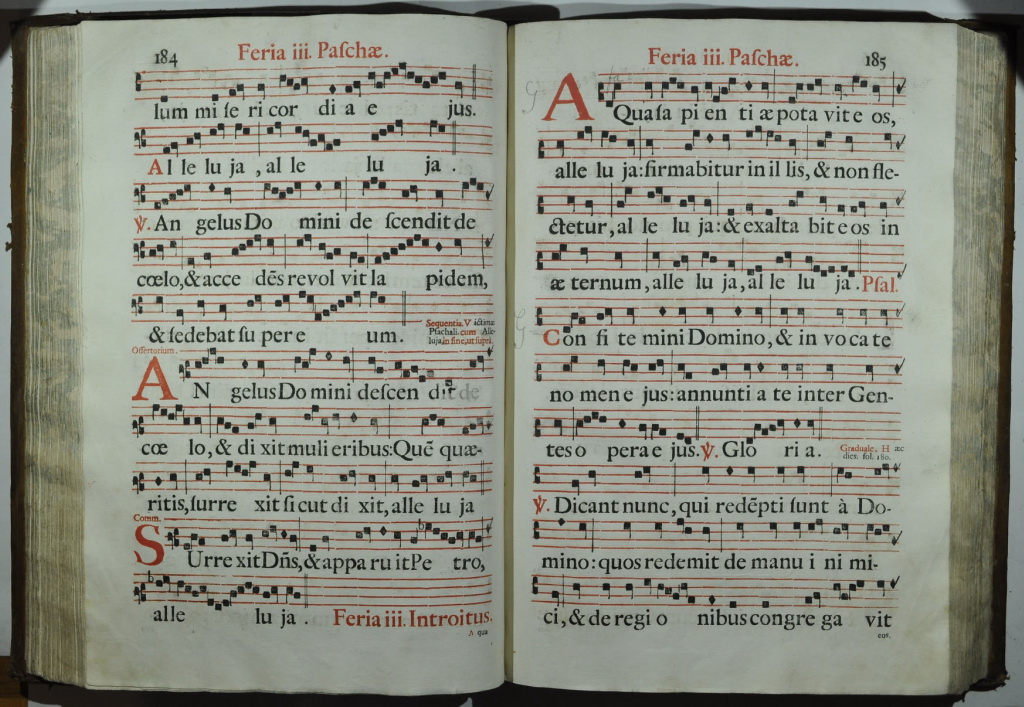 184 Feria iii. Paſchæ.
lum mi ſe ri cor di a e jus.
Al le lu ja , al le lu ja .
℣. An gelus Do mini de ſcendit de
cœlo, & acce dẽs revol vit la pidem,
& ſedebat ſu per e um.
Sequentia. V ictimæ
Pſachali. cum Alle-
luja, in fine, ut ſupra.
Offertorium.
AN gelus Do mini deſcen dit de
cœ lo, & di xit muli eribus: Quẽ quæ-
ritis, ſurre xit ſicut di xit, alle lu ja
Comm.
SUrre xit Dñs, & appa ru it Pe tro,
alle lu ja . Feria iii. Introitus.
A qua
Feria iii. Paſchæ. 185
AQua ſa pi en ti æ pota vit e os,
alle lu ja: firmabitur in il lis, & non fle-
ctetur, al le lu ja: & exalta bit e os in
æ ternum, alle lu ja, al le lu ja. Pſal.
Con fi te mini Domino, & in vo ca te
no men e jus: annunti a te inter Gen-
tes o pera e jus. ℣. Glo ri a.
Graduale. H æc
dies. fol. 180.
℣. Dicant nunc, qui redẽpti ſunt à Do-
mino: quos redemit de manu i ni mi-
ci, & de regi o nibus congre ga vit
eos.